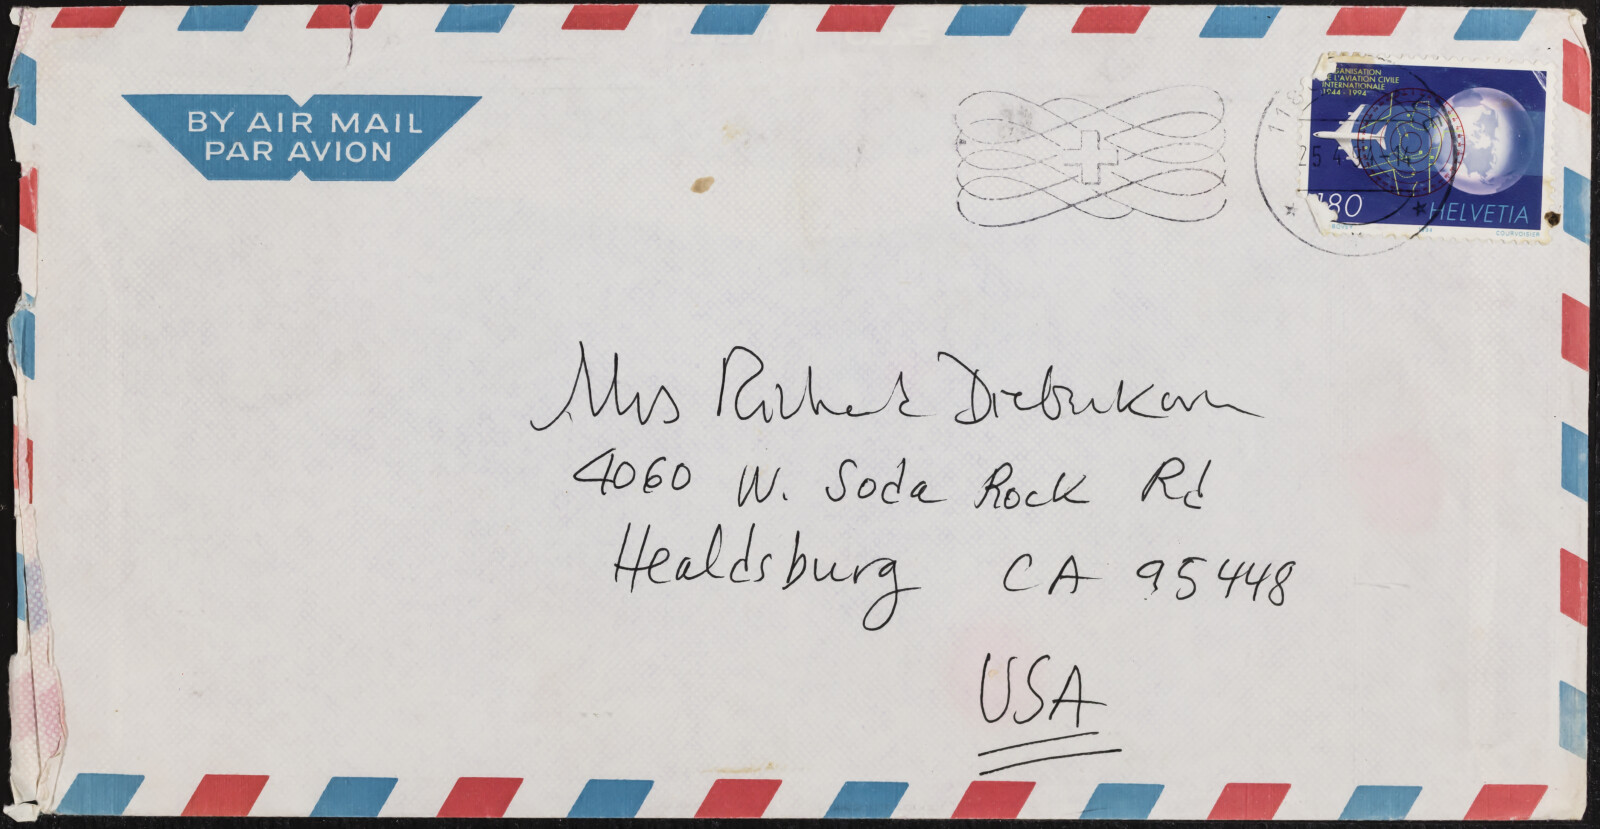 BY AIR MAIL
PAR AVION
ORGANISATION
DE L'AVIATION CIVILE
INTERNATIONALE
1944 - 1994
25 4
180
HELVETIA
COURVOISIER
Mrs Richard Diebenkorn
4060 W. Soda Rock Rd
Healdsburg CA 95448
USA